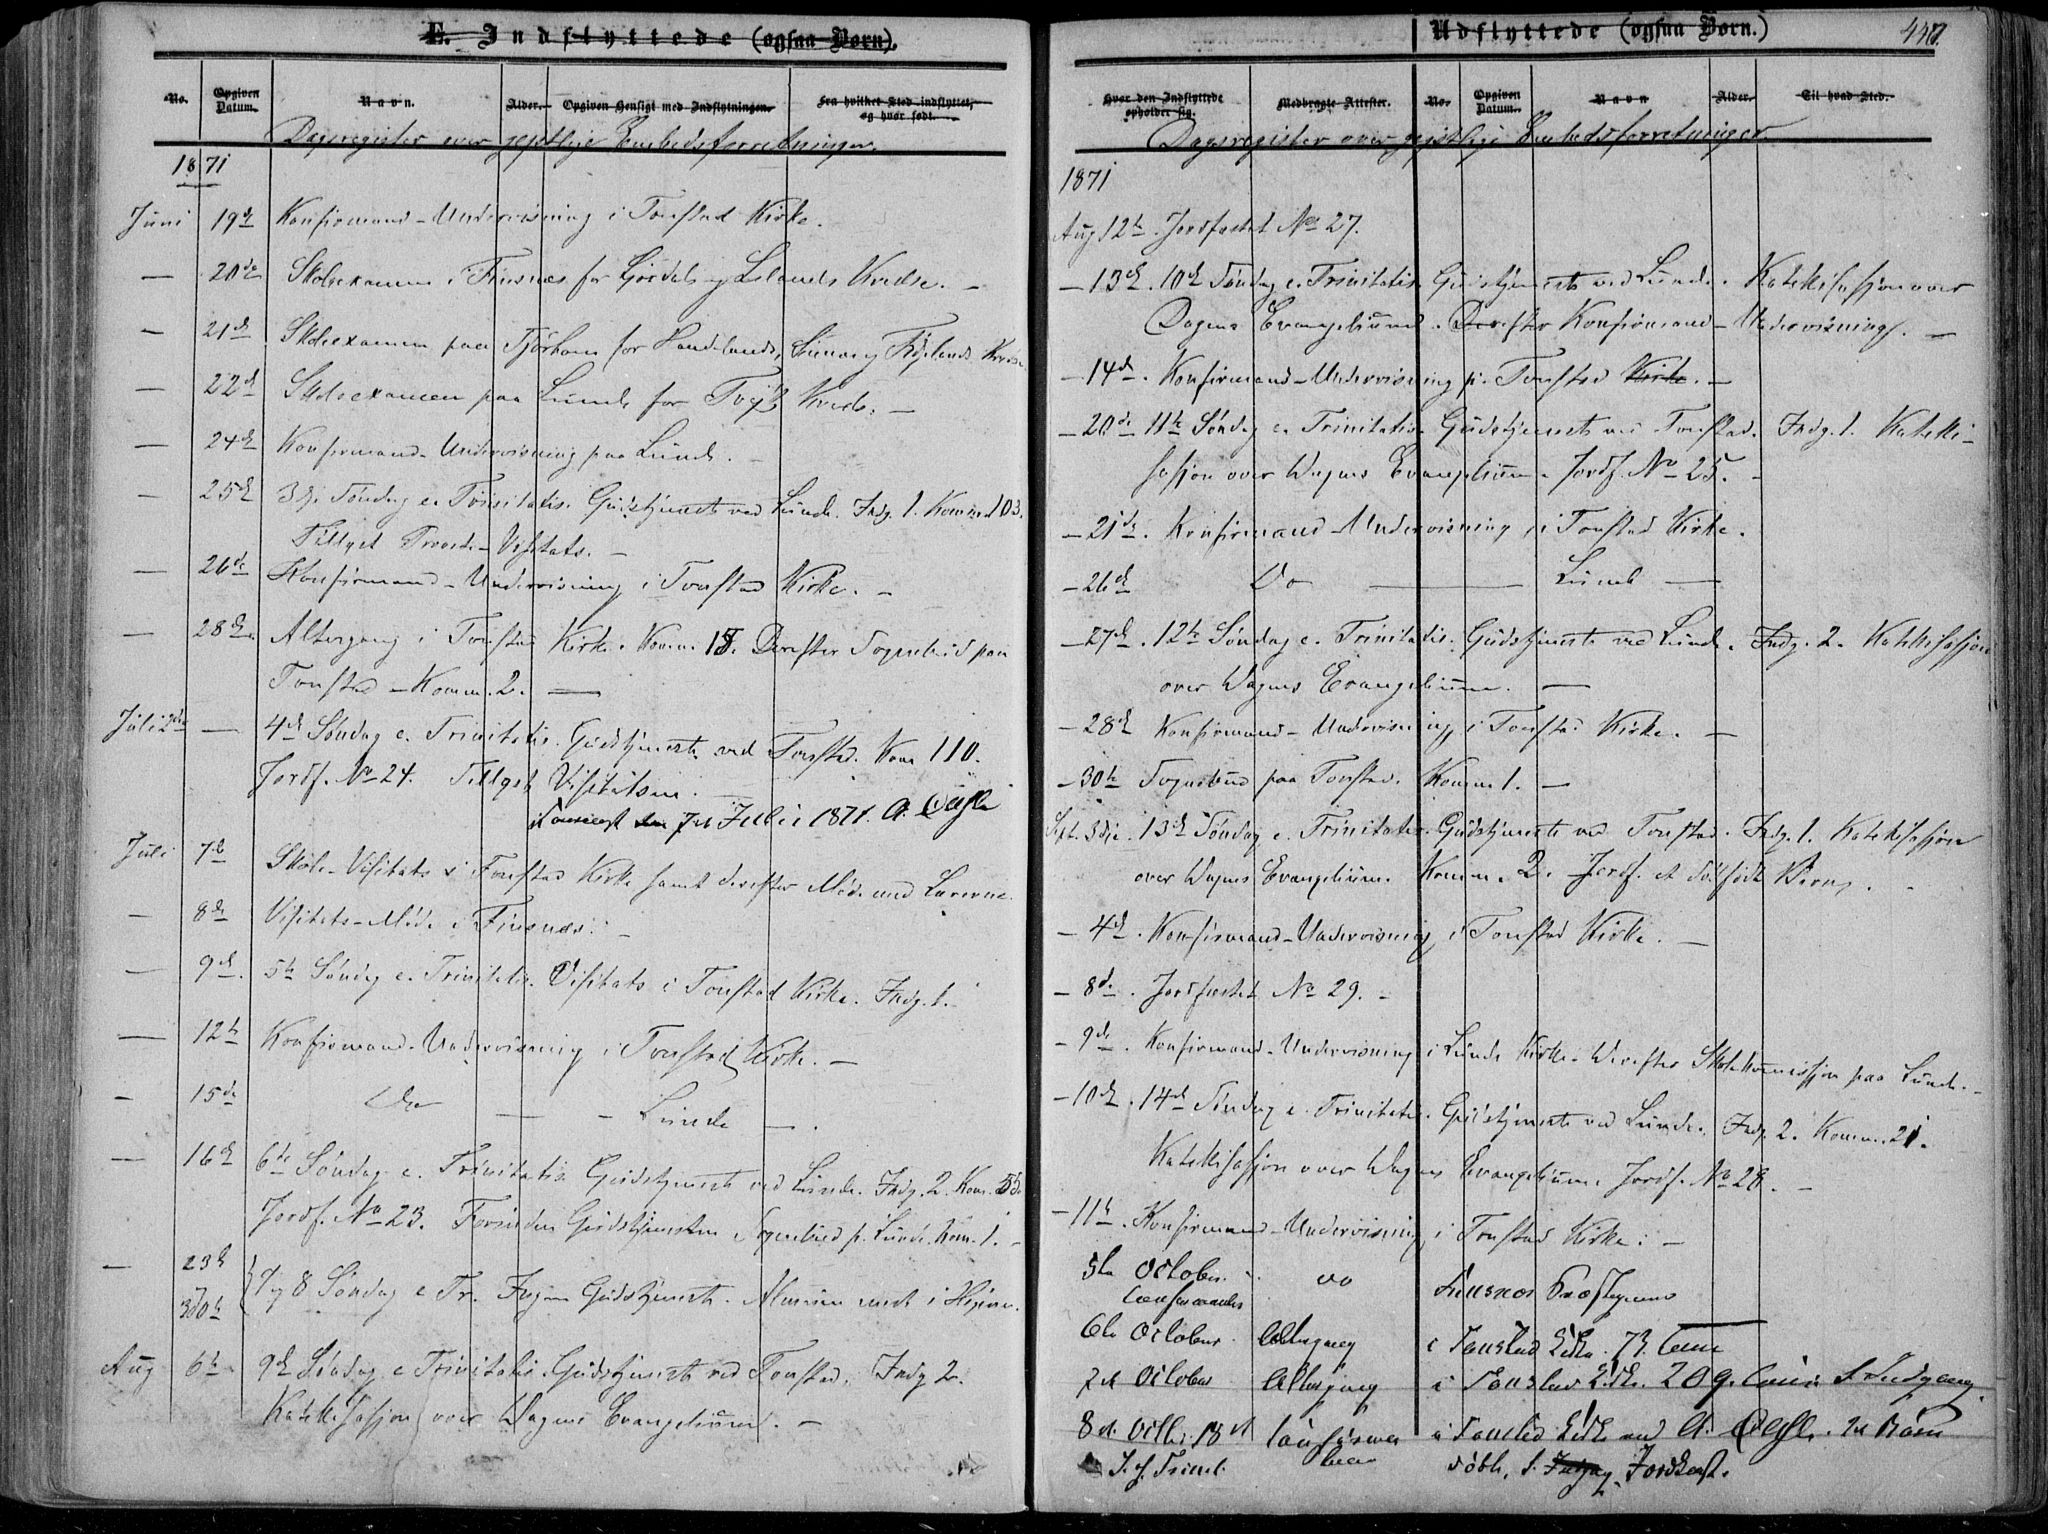 E. Indflyttede (ogsaa Børn).
No.
Opgiven Datum.
Navn.
Alder.
Opgiven Hensigt med Indflytningen.
Fra hvilket Sted indflyttet, og hvor født.
Dagsregister over geistlige Embedsforretninger.
1871
Juni 19de Konfirmand-Undervisning i Tonstad Kirke.
— 20de Skoleexamen i Finsnes for Gjørdals og Lølands Kredse. —
— 21de Skoleexamen paa Tjørhom for Haudelands, Sinnes og Fidjelands Kredse
— 22de Skoleexamen paa Lunde for Kreds. —
— 24de Konfirmand-Undervisning paa Lunde. —
— 25de 3die Søndag e. Trinitatis. Gudstjeneste ved Lunde. Indg. 1. Komm. 103.
Tillyst Provste-Visitats. —
— 26de Konfirmand-Undervisning i Tonstad Kirke. —
— 28de Altergang i Tonstad Kirke. Komm. 15. Derefter Sognebud paa
Tonstad – Komm. 2. —
Juli 2den — 4de Søndag e. Trinitatis. Gudstjeneste ved Tonstad. Kom 110.
Jordf. No 24. Tillyst Visitatsen. —
7de Juli 1871.
Juli 7de Skole-Visitats i Tonstad Kirke samt derefter Møde med Lærerne.
— 8de Visitats-Møde i Finsnes. —
— 9de 5te Søndag e. Trinitatis. Visitats i Tonstad Kirke. Indg. 1. —
— 12te Konfirmand-Undervisning i Tonstad Kirke. —
— 15de Do — — Lunde —.
— 16de 6te Søndag e. Trinitatis Gudstjeneste ved Lunde. Indg. 2. Kom. 55.
Jordf. No 23. Forinden Gudstjenesten Sognebud p. Lunde. Kom. 1. —
— 23de
30te 7 og 8 Søndag e Tr. Ingen Gudstjeneste.
Aug 6te 9de Søndag e Trinitatis. Gudstjeneste ved Tonstad. Indg 2.
Katekisasjon over Dagens Evangelium. —
Udflyttede (ogsaa Børn.)
Hvor den Indflyttede opholder sig.
Medbragte Attester.
No.
Opgiven Datum.
Navn
Alder.
Til hvad Sted.
Dagsregister over geistlige Embedsforretninger
1871
Aug 12te. Jordfæstet No 27.
— 13de. 10de Søndag e. Trinitatis. Gudstjeneste ved Lunde. Katekisasjon over
Dagens Evangelium. Derefter Konfirmand-Undervisning. —
— 14de. Konfirmand-Undervisning p. Tonstad Kirke. —
— 20de 11te Søndag e. Trinitatis. Gudstjeneste ved Tonstad. Indg. 1. Kateki-
sasjon over Dagens Evangelium. Jordf. No 25. —
— 21de. Konfirmand-Undervisning i Tonstad Kirke.
— 26de Do — Lunde —
— 27de. 12te Søndag e. Trinitatis. Gudstjeneste ved Lunde. Indg. 2. Katekisasjon
over Dagens Evangelium. —
— 28de Konfirmand-Undervisning i Tonstad Kirke. —
— 30te Sognebud paa Tonstad. Komm 1. —
Sept. 3die. 13de Søndag e. Trinitatis. Gudstjeneste ved Tonstad. Indg. 1. Katekisasjon
over Dagens Evangelium. Komm. 2. Jordf. et dødfødt Barn.
— 4de. Konfirmand-Undervisning i Tonstad Kirke. —
— 8de. Jordfæstet No 29. —
— 9de. Konfirmand-Undervisning i Lunde Kirke. Derefter Skolekommissjon paa Lunde. —
— 10de. 14de Søndag e. Trinitatis. Gudstjeneste ved Lunde. Indg. 2. Komm. 21.
Katekisasjon over Dagens Evangelium. Jordf. No 28. —
— 11te. Konfirmand-Undervisning i Tonstad Kirke. —
5te October. do Finsnes Præstegaard
6te October Altergang i Tonstad Kirke. 73. Com
7de October Altergang i Tonstad Kirke. 209. Com. 1. Indgang
8de Octbr. 18de i Tonstad Kirke ved
S. e. Trinit. døbte, 1. Jordkast.